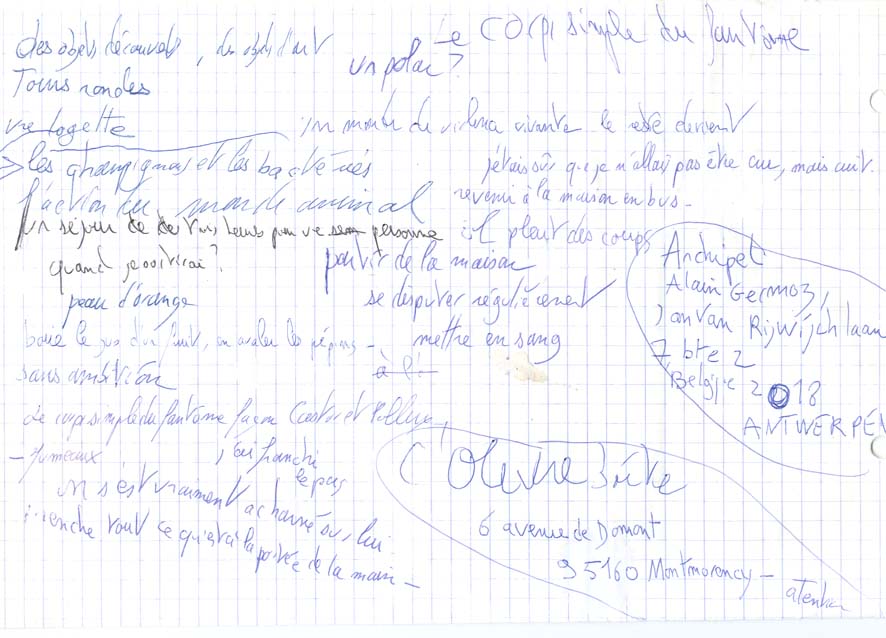 Le corps simple du fantôme
des objets découverts, des objets d'art
un polar ?
Tours rondes
les champignons et les bactéries
l'action du monde animal
quand j'ouvrirai ?
peau d'orange
boire le jus d'un fruit, en avaler les pépins -
sans ambition
Le corps simple du fantôme façon Castor et Pollux,
- jumeaux
j'ai franchi
le pas
on s'est vraiment acharné sur lui
tout ce qui est à la portée de la main -
un monde de violence vivante le reste devient
j'étais sûr que je n'allais pas être cru, mais
revenir à la maison en bus -
il pleut des coups
partir de la maison
se disputer régulièrement
mettre en sang
à l'
Archipel
Alain Germoz,
Jan Van Rijswijcklaan
7 bte 2
België 2018
ANTWERPEN
6 avenue de Domont
95160 Montmorency -